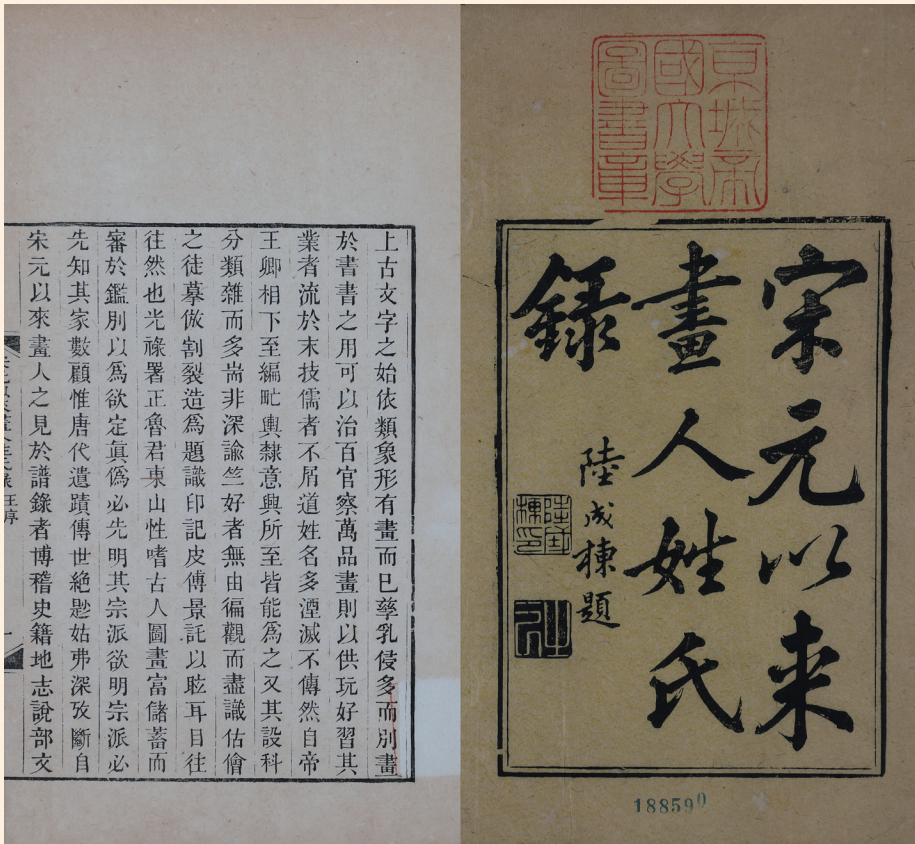 京城帝
國大學
圖書章
宋元以来
畫人姓氏
録
陸成棟題
188590
上古文字之始依類象形有畫而已孳乳侵多而別畫
於書書之用可以治百官察萬品畫則以供玩好習其
業者流於末技儒者不屑道姓名多湮滅不傳然自帝
王卿相下至編甿輿隸意興所至皆能爲之又其設科
分類雜而多耑非深諭竺好者無由徧觀而盡識估儈
之徒摹倣割裂造爲題識印記皮傅景託以眩耳目往
往然也光祿署正魯君東山性嗜古人圖畫富儲蓄而
審於鑑別以爲欲定眞僞必先明其宗派欲明宗派必
先知其家數顧惟唐代遺蹟傳世絶尟姑弗深攷斷自
宋元以來畫人之見於譜錄者博稽史籍地志說部文